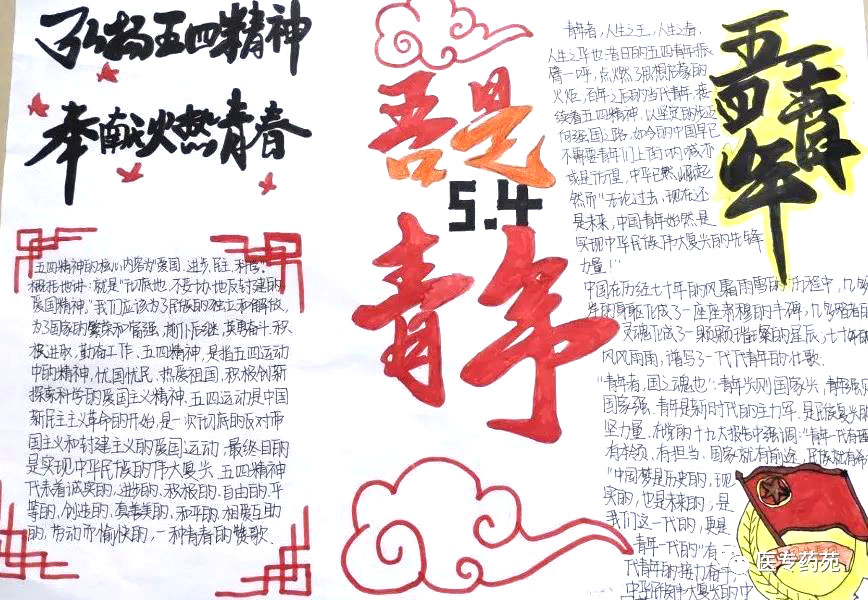 弘扬五四精神
奉献火燃青春
五四精神的核心内容为"爱国、进步、民主、科学"。
根托也讲:就是"彻底地、不妥协地反封建的
爱国精神。"我们应该为了民族的独立和解放,
为了国家的繁荣和富强,前仆后继、英勇奋斗、积
极进取、勤奋工作。五四精神,是指五四运动
中的精神,忧国忧民、热爱祖国、积极创新
探索科学的爱国主义精神,五四运动是中国
新民主主义革命的开始,是一次彻底的反对帝
国主义和封建主义的爱国运动,最终目的
是实现中华民族的伟大复兴,五四精神
代表着诚实的、进步的、积极的、自由的、平
等的、创造的、真善美的,和平的、相爱互助
的,劳动而愉快的,一种青春的赞歌.
吾是
5.4
青年
五四青年
青年者,人生之王,人生之春,
人生之华也,昔日的五四青年振
臂一呼,点燃了思想启蒙的
火炬,百年之后的当代青年,接
续着五四精神,以坚实的步迈
向强国之路,如今的中国早已
不需要青年们上街呐喊亦
或是彷徨,中华已然崛起
然而"无论过去、现在还
是未来,中国青年始终是
实现中华民族伟大复兴的先锋
力量!"
中国在历经七十年的风霜雨雪的历程中,几多
年的身躯化成了一座座肃穆的丰碑,几多
灵魂化成了一颗颗璀璨的星辰,七十年的
风风雨雨,谱写了一代代青年的壮歌.
"青年者,国之魂也":青年兴则国家兴,青年强则
国家强.青年是新时代的主力军.是民族复兴的
坚力量,在党的十九大报告中强调:"青年一代有理
有本领、有担当,国家就有前途,民族就有希
"中国梦是历史的,现
实的,也是未来的;是
我们这一代的,更是
青年一代的"有一
代青年的接力奋斗,
中华民族伟大复兴的中
医专药苑